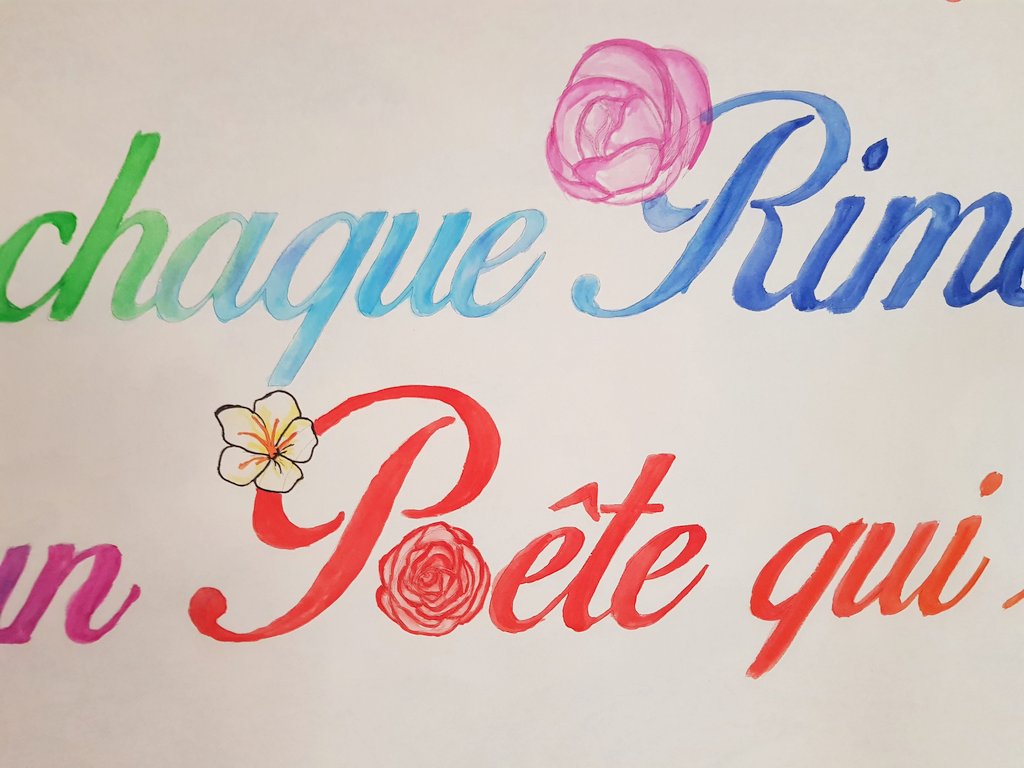 chaque Rime
un Poête qui